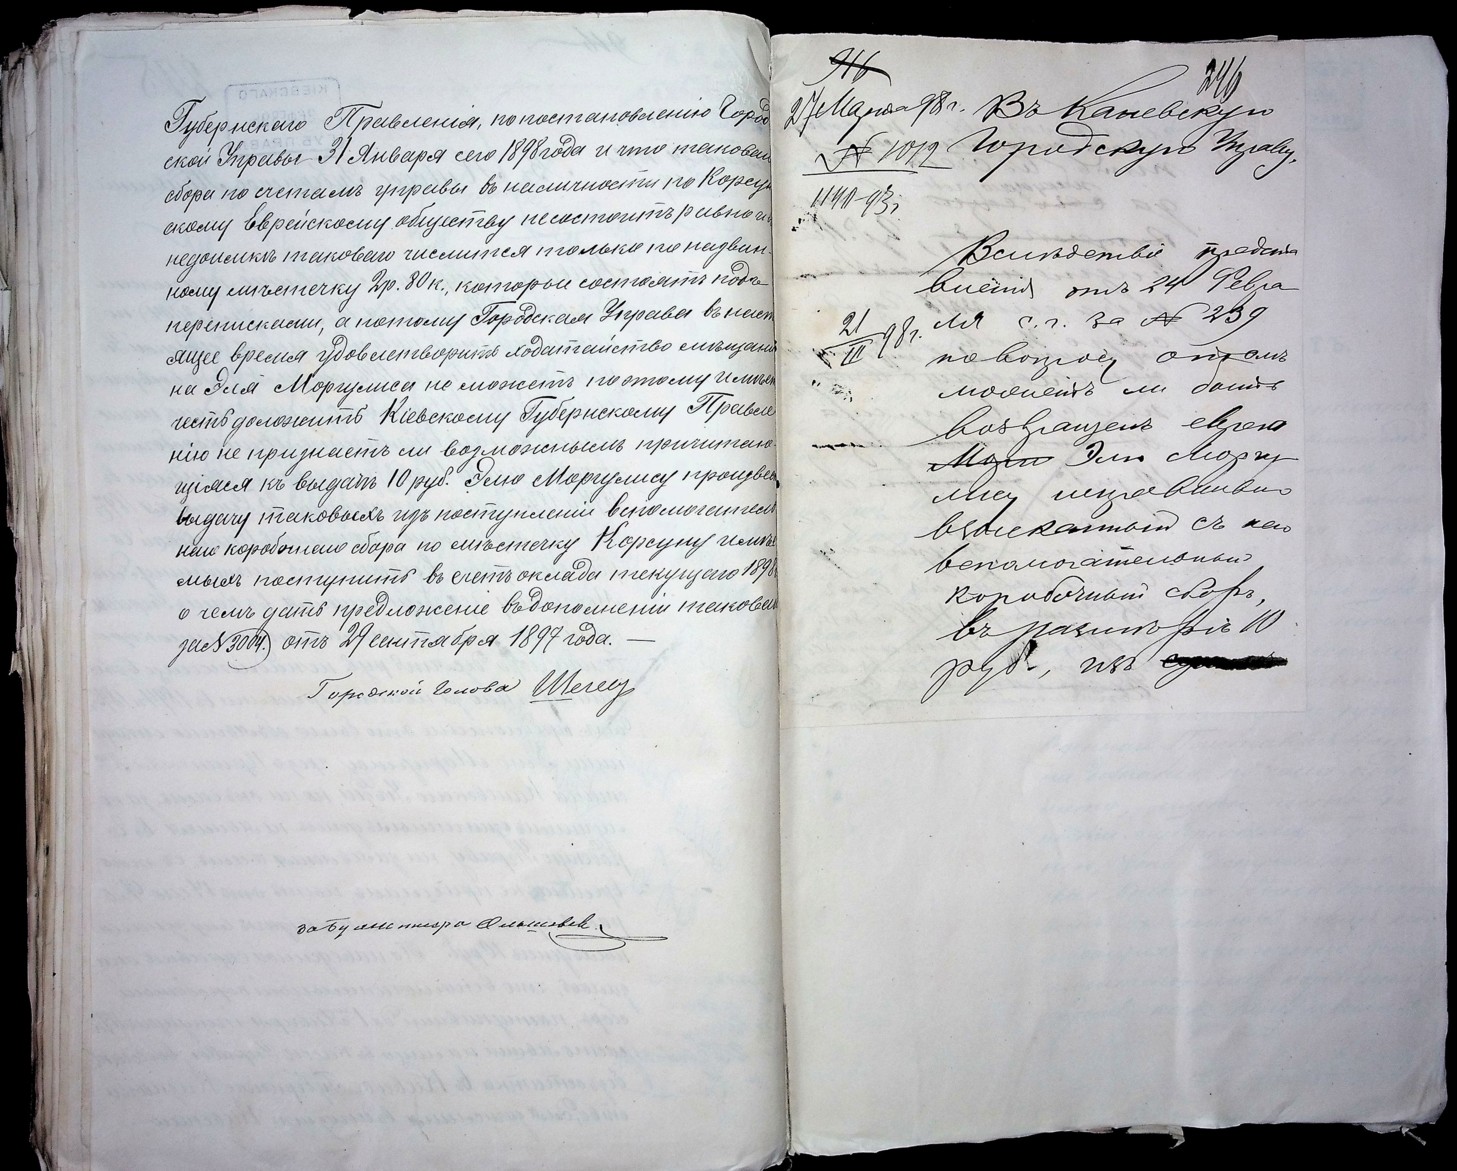 Губернскаго Правленія, по постановленію Город
ской Управы 31 Января сего 1898 года и что таковаго
сбора по счетамъ управы въ наличности по Корсун
скому Еврейскому обществу несостоитъ равно и
недоимкъ таковаго числится только по надзван-
ному мѣстечку 2 р. 80 к., которыи состоятъ подъ
перепискаии, а потому Городская Управа въ наст
ящее время удовлетворить ходатайство мѣщани
на Эля Моргулиса не можетъ поэтому имѣетъ
честь доложить Кіевскому Губернскому Правле
нію не признаетъ ли возможнымъ причитаю-
щіяся къ выдачѣ 10 руб. Элю Моргулису произвес
выдачу таковыхъ изъ поступленій вспомогатель
наго коробочнаго сбора по мѣстечку Корсуну имѣю
мыхъ поступить въ счетъ оклада текущаго 1898
о чемъ дать предложеніе въ дополненіи таковаго
за № 3004) отъ 29 сентября 1897 года. —
Городской Голова
за Бухгалтера
916
246
27 Марта 98 г. Въ Каневскую
№ 1012 Городскую Управу.
1140-93 г
Вслѣдствіе предста
вленія отъ 24 Февра
21/III 98 г. ля с. г. за № 239
по вопросу о томъ
можетъ ли быть
возвращенъ еврею
Элю Моргу
лису неправильно
взысканный съ него
вспомогательный
коробочный сборъ,
въ размѣрѣ 10
руб., изъ